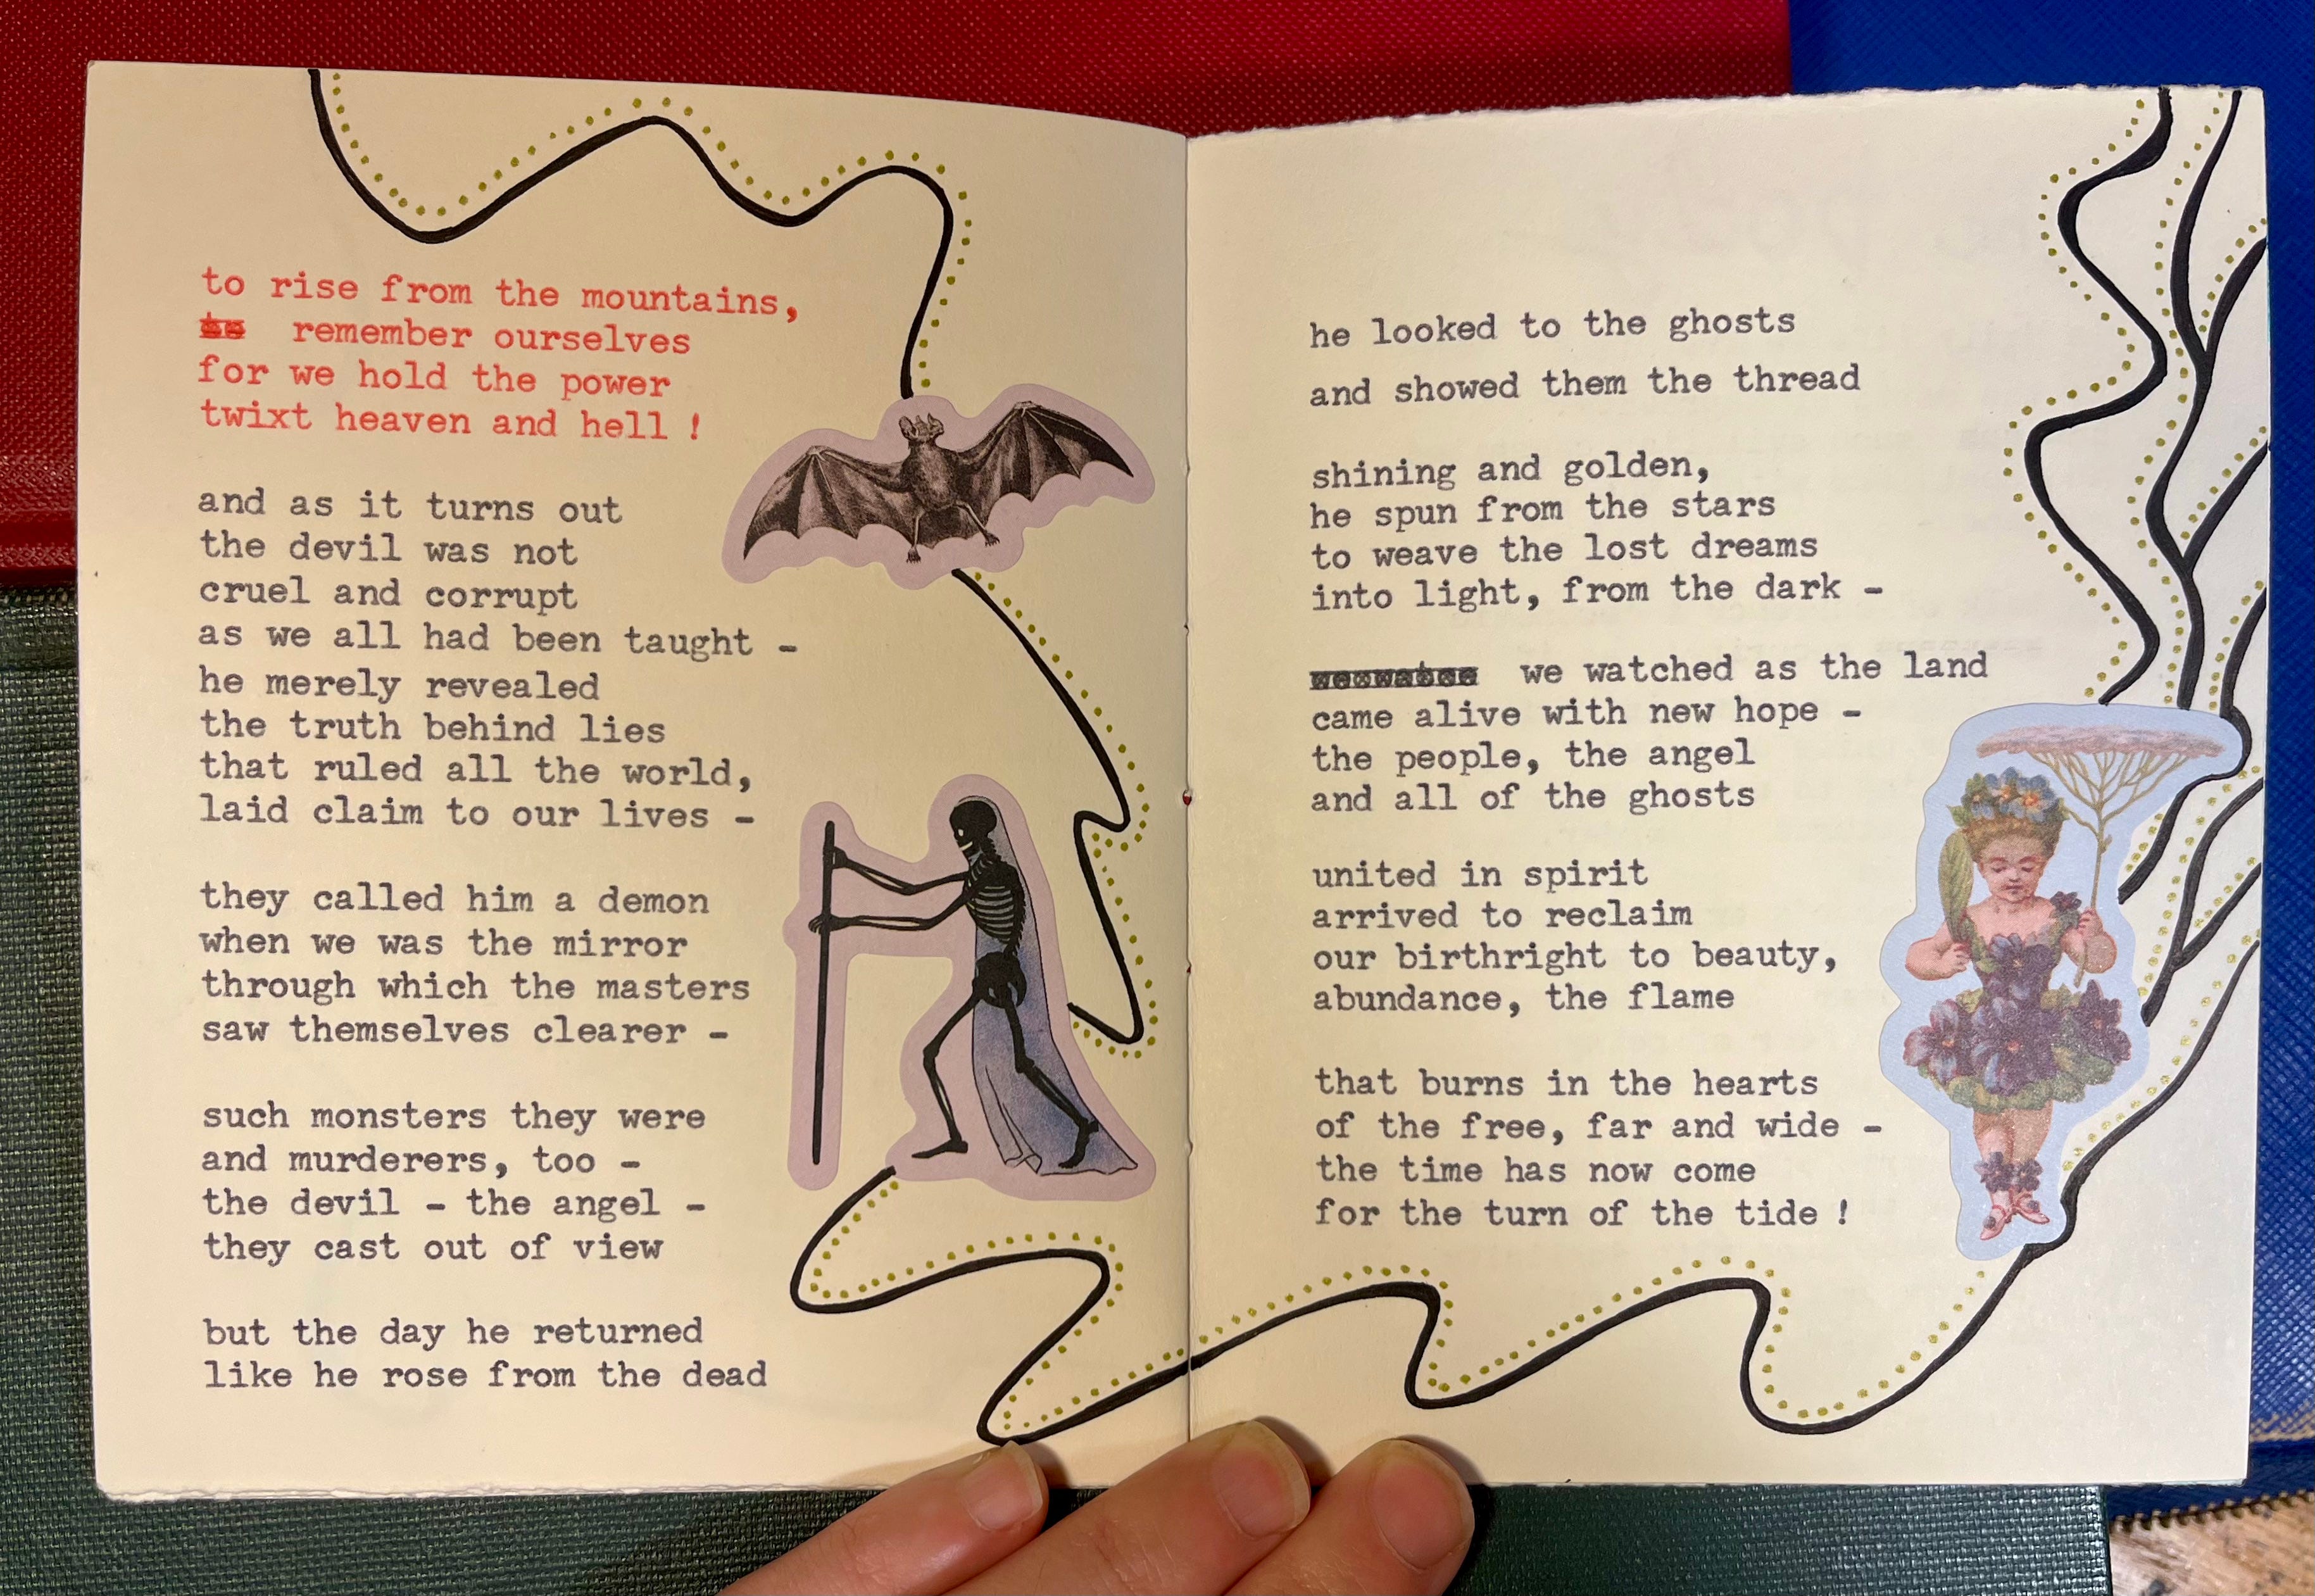 to rise from the mountains,
remember ourselves
for we hold the power
twixt heaven and hell !
and as it turns out
the devil was not
cruel and corrupt
as we all had been taught -
he merely revealed
the truth behind lies
that ruled all the world,
laid claim to our lives -
they called him a demon
when we was the mirror
through which the masters
saw themselves clearer -
such monsters they were
and murderers, too -
the devil - the angel -
they cast out of view
but the day he returned
like he rose from the dead
he looked to the ghosts
and showed them the thread
shining and golden,
he spun from the stars
to weave the lost dreams
into light, from the dark -
we watched as the land
came alive with new hope -
the people, the angel
and all of the ghosts
united in spirit
arrived to reclaim
our birthright to beauty,
abundance, the flame
that burns in the hearts
of the free, far and wide -
the time has now come
for the turn of the tide !